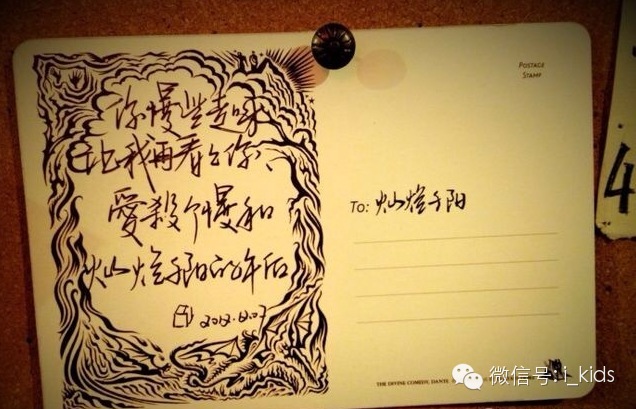 你慢些走
让我再看看你
愛殺个慢和
灿烂千阳的午后
POSTAGE
STAMP
To: 灿烂千阳
THE DIVINE COMEDY, DANTE
4
微信号: i_kids